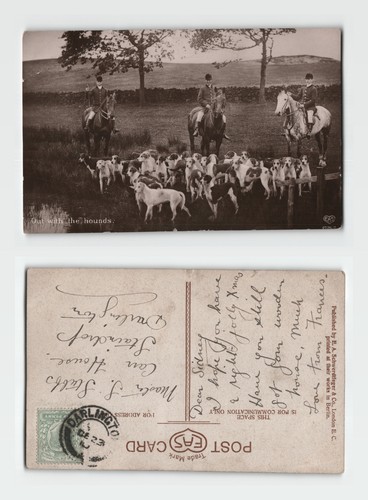 Out with the hounds
EAS
Published by E. A. Schwerdtfeger & Co., London E. C.
printed at their works in Berlin.
POST CARD
Trade Mark
EAS
THIS SPACE
IS FOR COMMUNICATION ONLY
FOR ADDRESS
DARLINGTON
Dear Sidney
I hope you have
a right jolly Xmas
Have you still
got your wooden
horse. Much
Love from Frances.
Master S
House.
Staindrop
Darlington